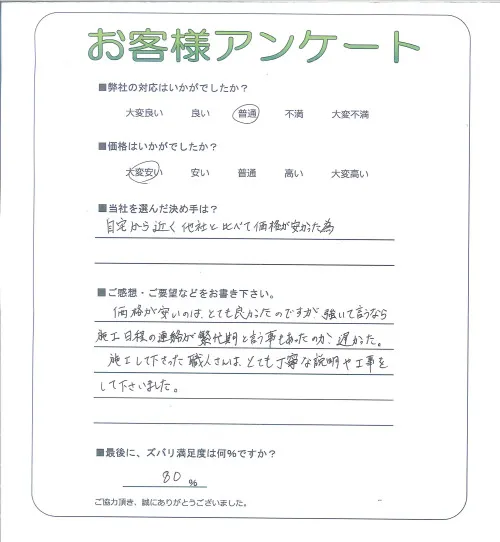 お客様アンケート
■弊社の対応はいかがでしたか?
大変良い 良い 普通 不満 大変不満
■価格はいかがでしたか?
大変安い 安い 普通 高い 大変高い
■当社を選んだ決め手は?
自宅から近く他社と比べて価格が安かった為
■ご感想・ご要望などをお書き下さい。
価格が安いのは、とても良かったのですが、強いて言うなら
施工日程の連絡が繁忙期と言う事もあったのか、遅かった。
施工して下さった職人さんは、とても丁寧な説明や工事を
して下さいました。
■最後に、ズバリ満足度は何%ですか?
80 %
ご協力頂き、誠にありがとうございました。